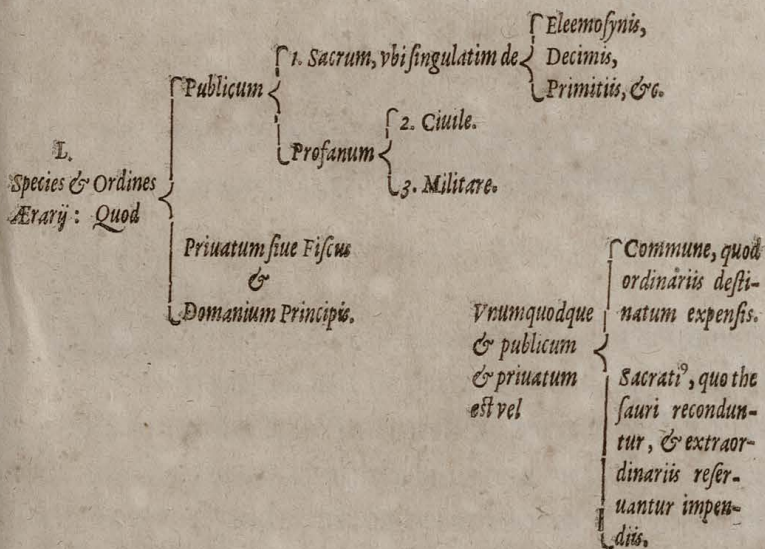 L.
Species & Ordines
Ærarij : Quod
Publicum
1. Sacrum, vbi ſingulatim de
Eleemoſynis,
Decimis,
Primitiis, &c.
Profanum
2. Ciuile.
3. Militare.
Priuatum ſiue Fiſcus
&
Domanium Principis.
Vnumquodque
& publicum
& priuatum
eſt vel
Commune, quod
ordinàriis deſti-
natum expenſis.
Sacratiꝰ, quo the
ſauri recondun-
tur, & extraor-
dinariis reſer-
uantur impen-
diis.